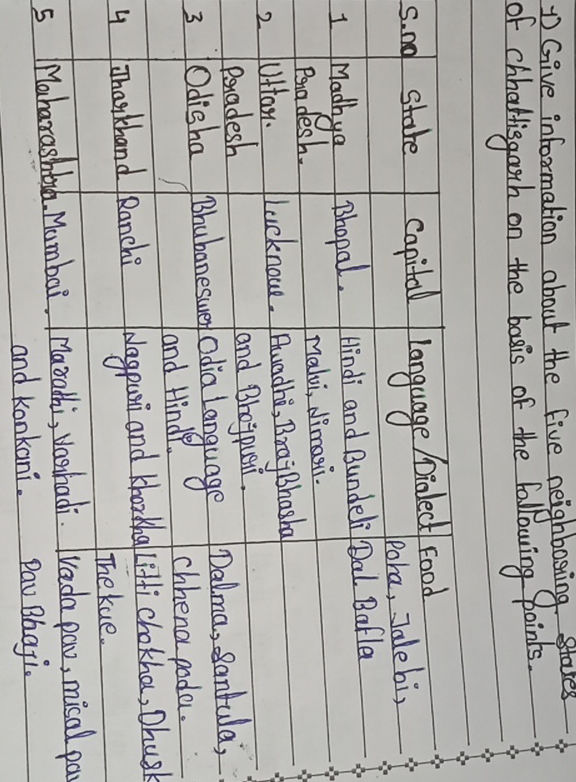 1) Give information about the five neighbouring states
of chhattisgarh on the basis of the following points.
S.no State Capital Language/Dialect Food
1 Madhya Bhopal. Hindi and Bundeli Poha, Jalebi,
Pradesh. Malvi, Nimari. Dal Bafla
2 Uttar. Lucknow. Awadhi, Braj Bhasha
Pradesh and Bhojpuri.
3 Odisha Bhubaneswer Odia Language Dalma, Santula,
and Hindi. Chhena poda.
4 Jharkhand Ranchi Nagpuri and Khortha Litti chokha, Dhusk
Thekue.
5 Maharashtra. Mumbai. Marathi, Varhadi. Vada pav, misal pav
and Konkani. Pav Bhaji.